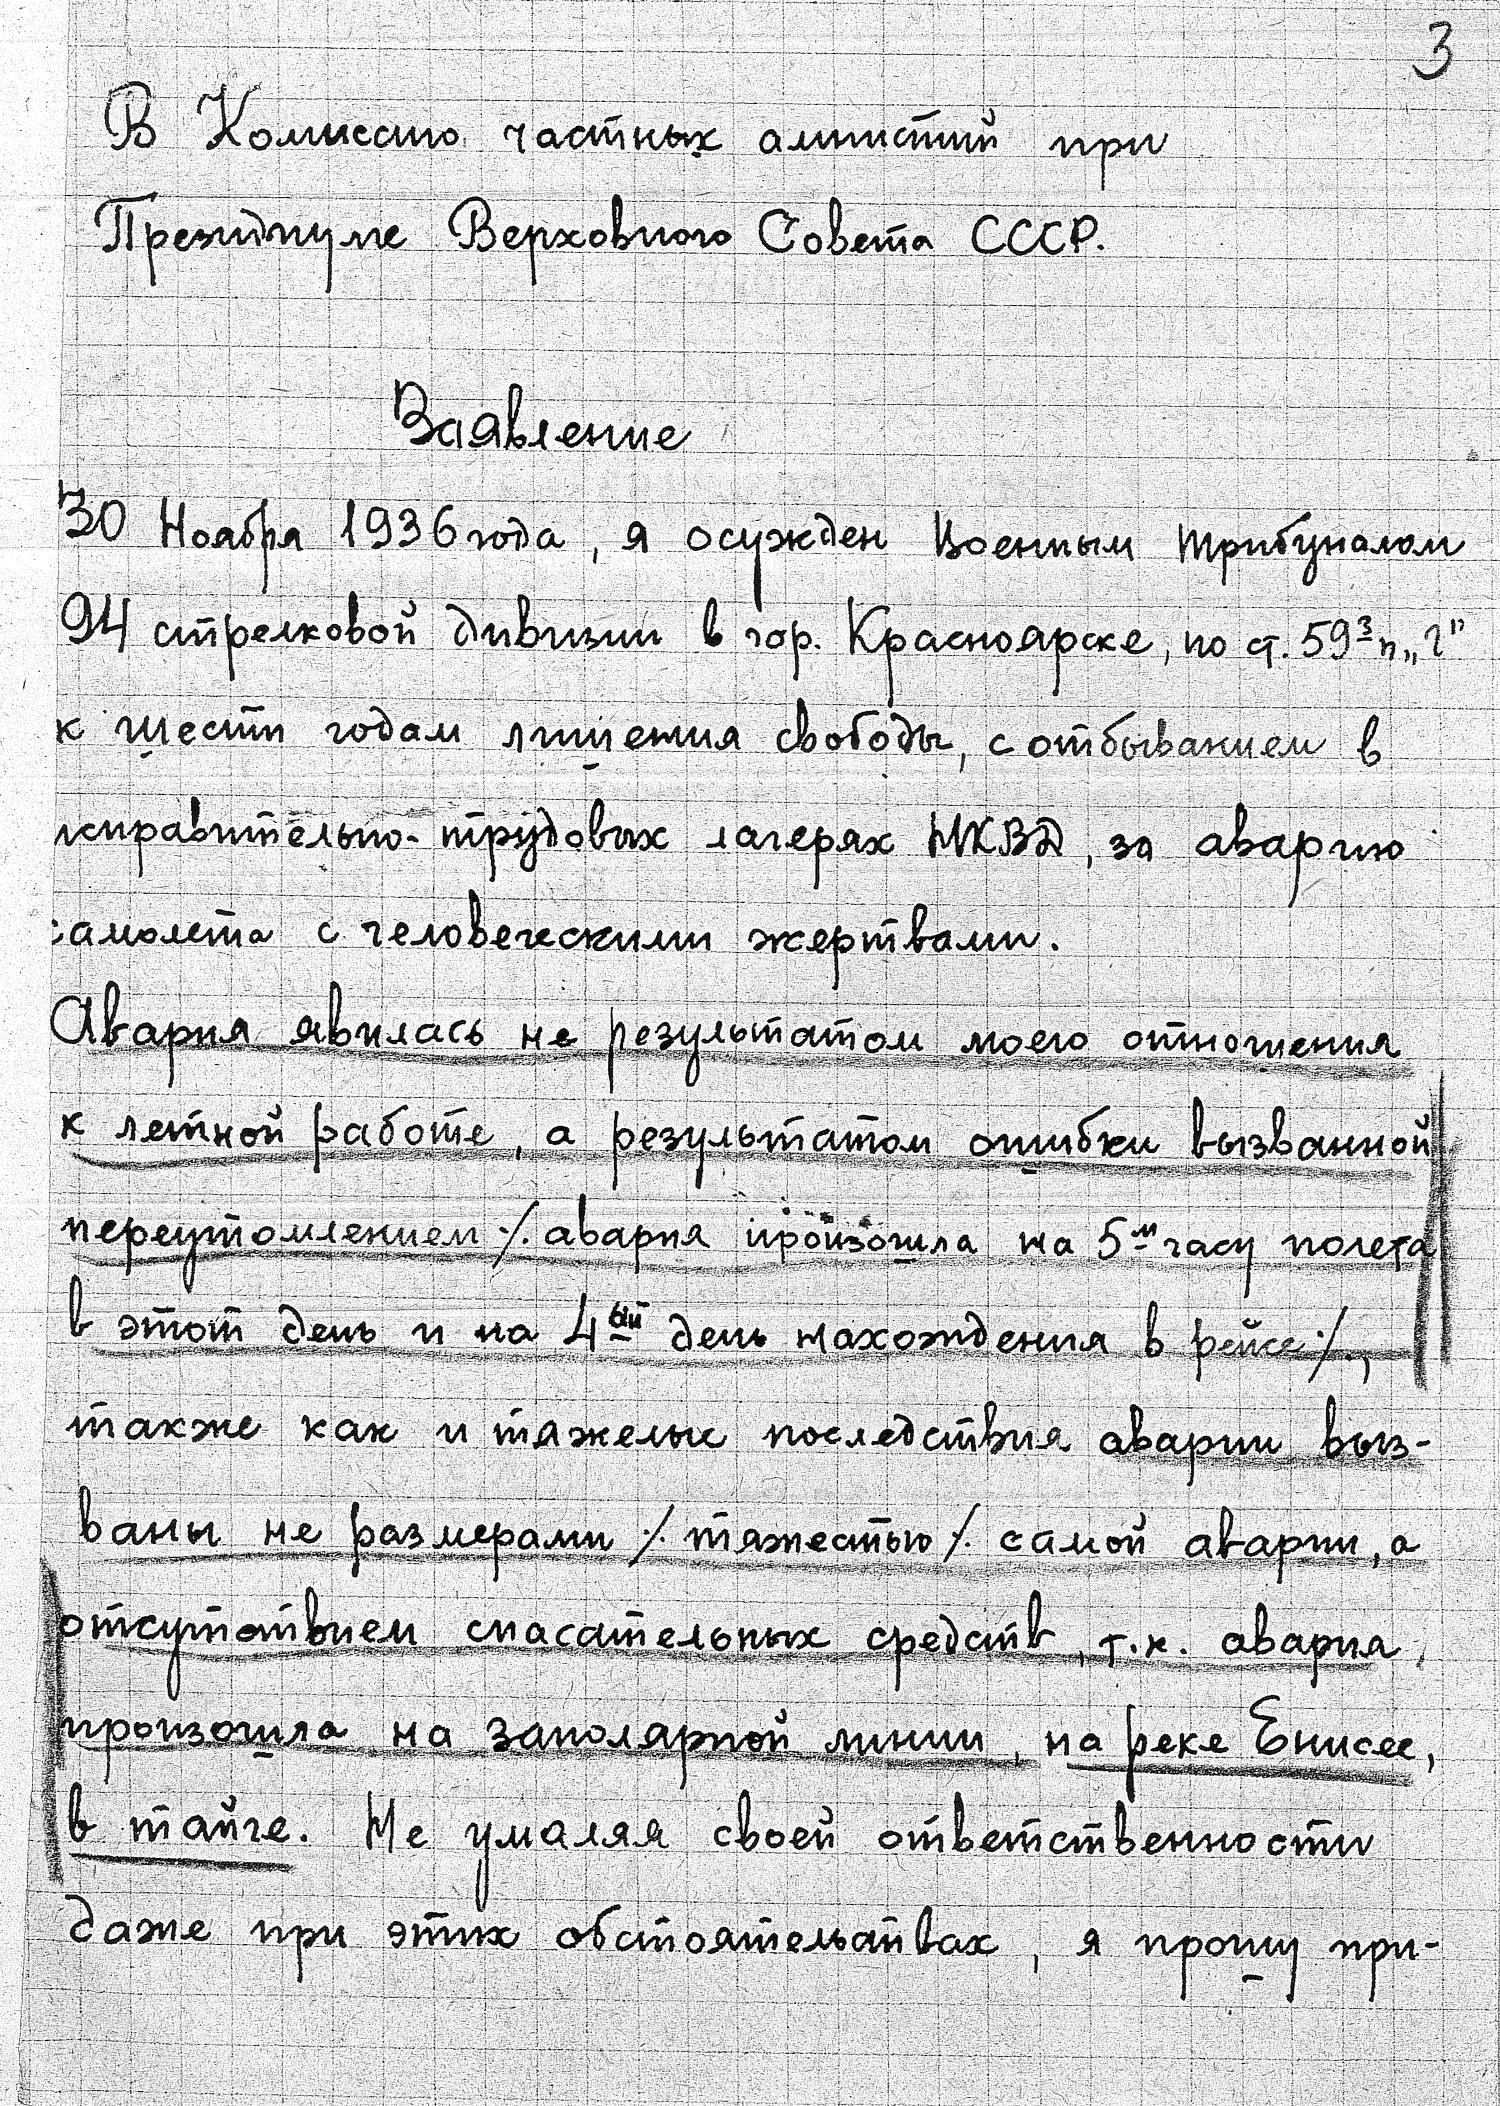 3
В Комиссию частных амнистий при
Президиуме Верховного Совета СССР.
Заявление
30 Ноября 1936 года, я осужден Военным трибуналом
94 стрелковой дивизии в гор. Красноярске, по ст. 59³ п. „г"
к шести годам лишения свободы, с отбыванием в
исправительно-трудовых лагерях НКВД, за аварию
самолета с человеческими жертвами.
Авария явилась не результатом моего отношения
к летной работе, а результатом ошибки вызванной
переутомлением ·/. авария произошла на 5ᵐ часу полета
в этот день и на 4ᵇⁱй день нахождения в рейсе ·/.,
также как и тяжелые последствия аварии выз-
ваны не размерами ·/. тяжестью ·/. самой аварии, а
отсутствием спасательных средств, т.к. авария,
произошла на заполярной линии, на реке Енисее,
в тайге. Не умаляя своей ответственности
даже при этих обстоятельствах, я прошу при-